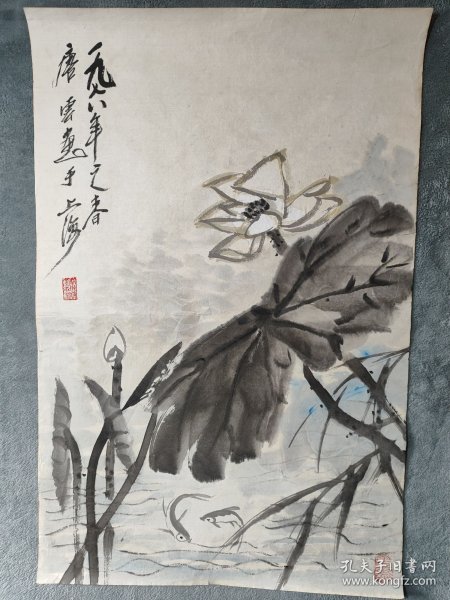 一九八八年之春
唐雲画于上海
孔夫子旧书网
www.kongfz.com